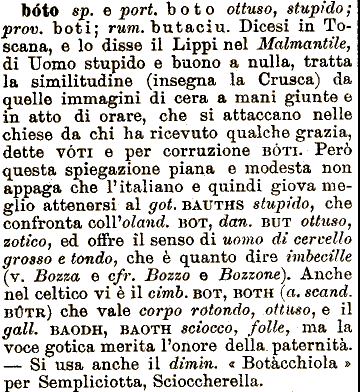 bóto sp. e port. boto ottuso, stupido;
prov. boti; rum. butaciu. Dicesi in To-
scana, e lo disse il Lippi nel Malmantile,
di Uomo stupido e buono a nulla, tratta
la similitudine (insegna la Crusca) da
quelle immagini di cera a mani giunte e
in atto di orare, che si attaccano nelle
chiese da chi ha ricevuto qualche grazia,
dette VÓTI e per corruzione BÓTI. Però
questa spiegazione piana e modesta non
appaga che l'italiano e quindi giova me-
glio attenersi al got. BAUTHS stupido, che
confronta coll'oland. BOT, dan. BUT ottuso,
zotico, ed offre il senso di uomo di cervello
grosso e tondo, che è quanto dire imbecille
(v. Bozza e cfr. Bozzo e Bozzone). Anche
nel celtico vi è il cimb. BOT, BOTH (a. scand.
BÛTR) che vale corpo rotondo, ottuso, e il
gall. BAODH, BAOTH sciocco, folle, ma la
voce gotica merita l'onore della paternità.
— Si usa anche il dimin. « Botàcchiola »
per Sempliciotta, Scioccherella.